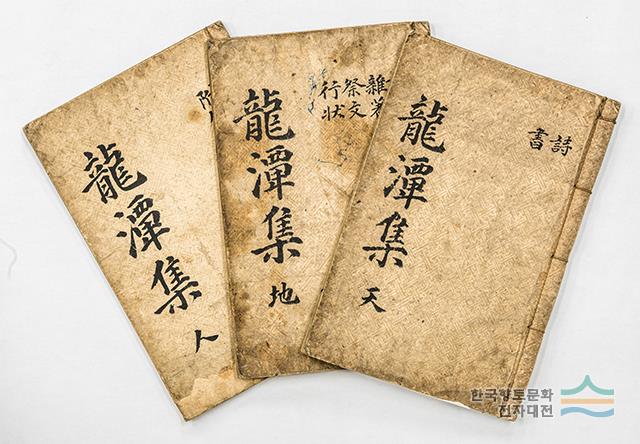 龍潭集
天
詩
書
龍潭集
地
雜著
祭文
行状
龍潭集
人
附
한국향토문화
전자대전